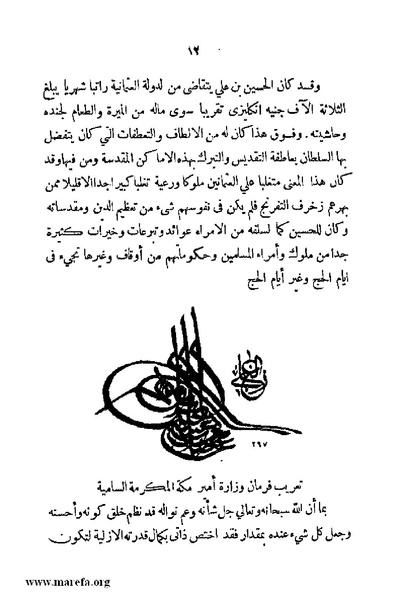 ١٢
وقد كان الحسين بن علي يتقاضى من لدولة العثمانية راتبا شهريا يبلغ
الثلاثة الآف جنيه انكليزى تقريبا سوى ماله من الميرة والطعام لجنده
وحاشيته . وفوق هذا كان له من الالطاف والتعطفات التي كان يتفضل
بها السلطان بعاطفة التقديس والتبرك بهذه الاماكن المقدسة ومن فيها وقد
كان هذا المعنى متغلبا علي العثمانيين ملوكا ورعية تغلبا كبيرا جدا الاقليلا ممن
بهرهم زخرف التفرنج فلم يكن فى نفوسهم شىء من تعظيم الدين ومقدساته
وكان للحسين كما لسلفه من الامراء عوائد وتبرعات وخيرات كثيرة
جدا من ملوك وأمراء المسلمين وحكوماتهم من أوقاف وغيرها تجيء فى
ايام الحج وغير أيام الحج
٢٩٧
تعريب فرمان وزارة أمير مكة المكرمة السامية
بما أن الله سبحانه وتعالي جل شأنه وعم نواله قد نظم خلق كونه وأحسنه
وجعل كل شيء عنده بمقدار فقد اختص ذاتى بكمال قدرته الازلية لتكون
www.marefa.org